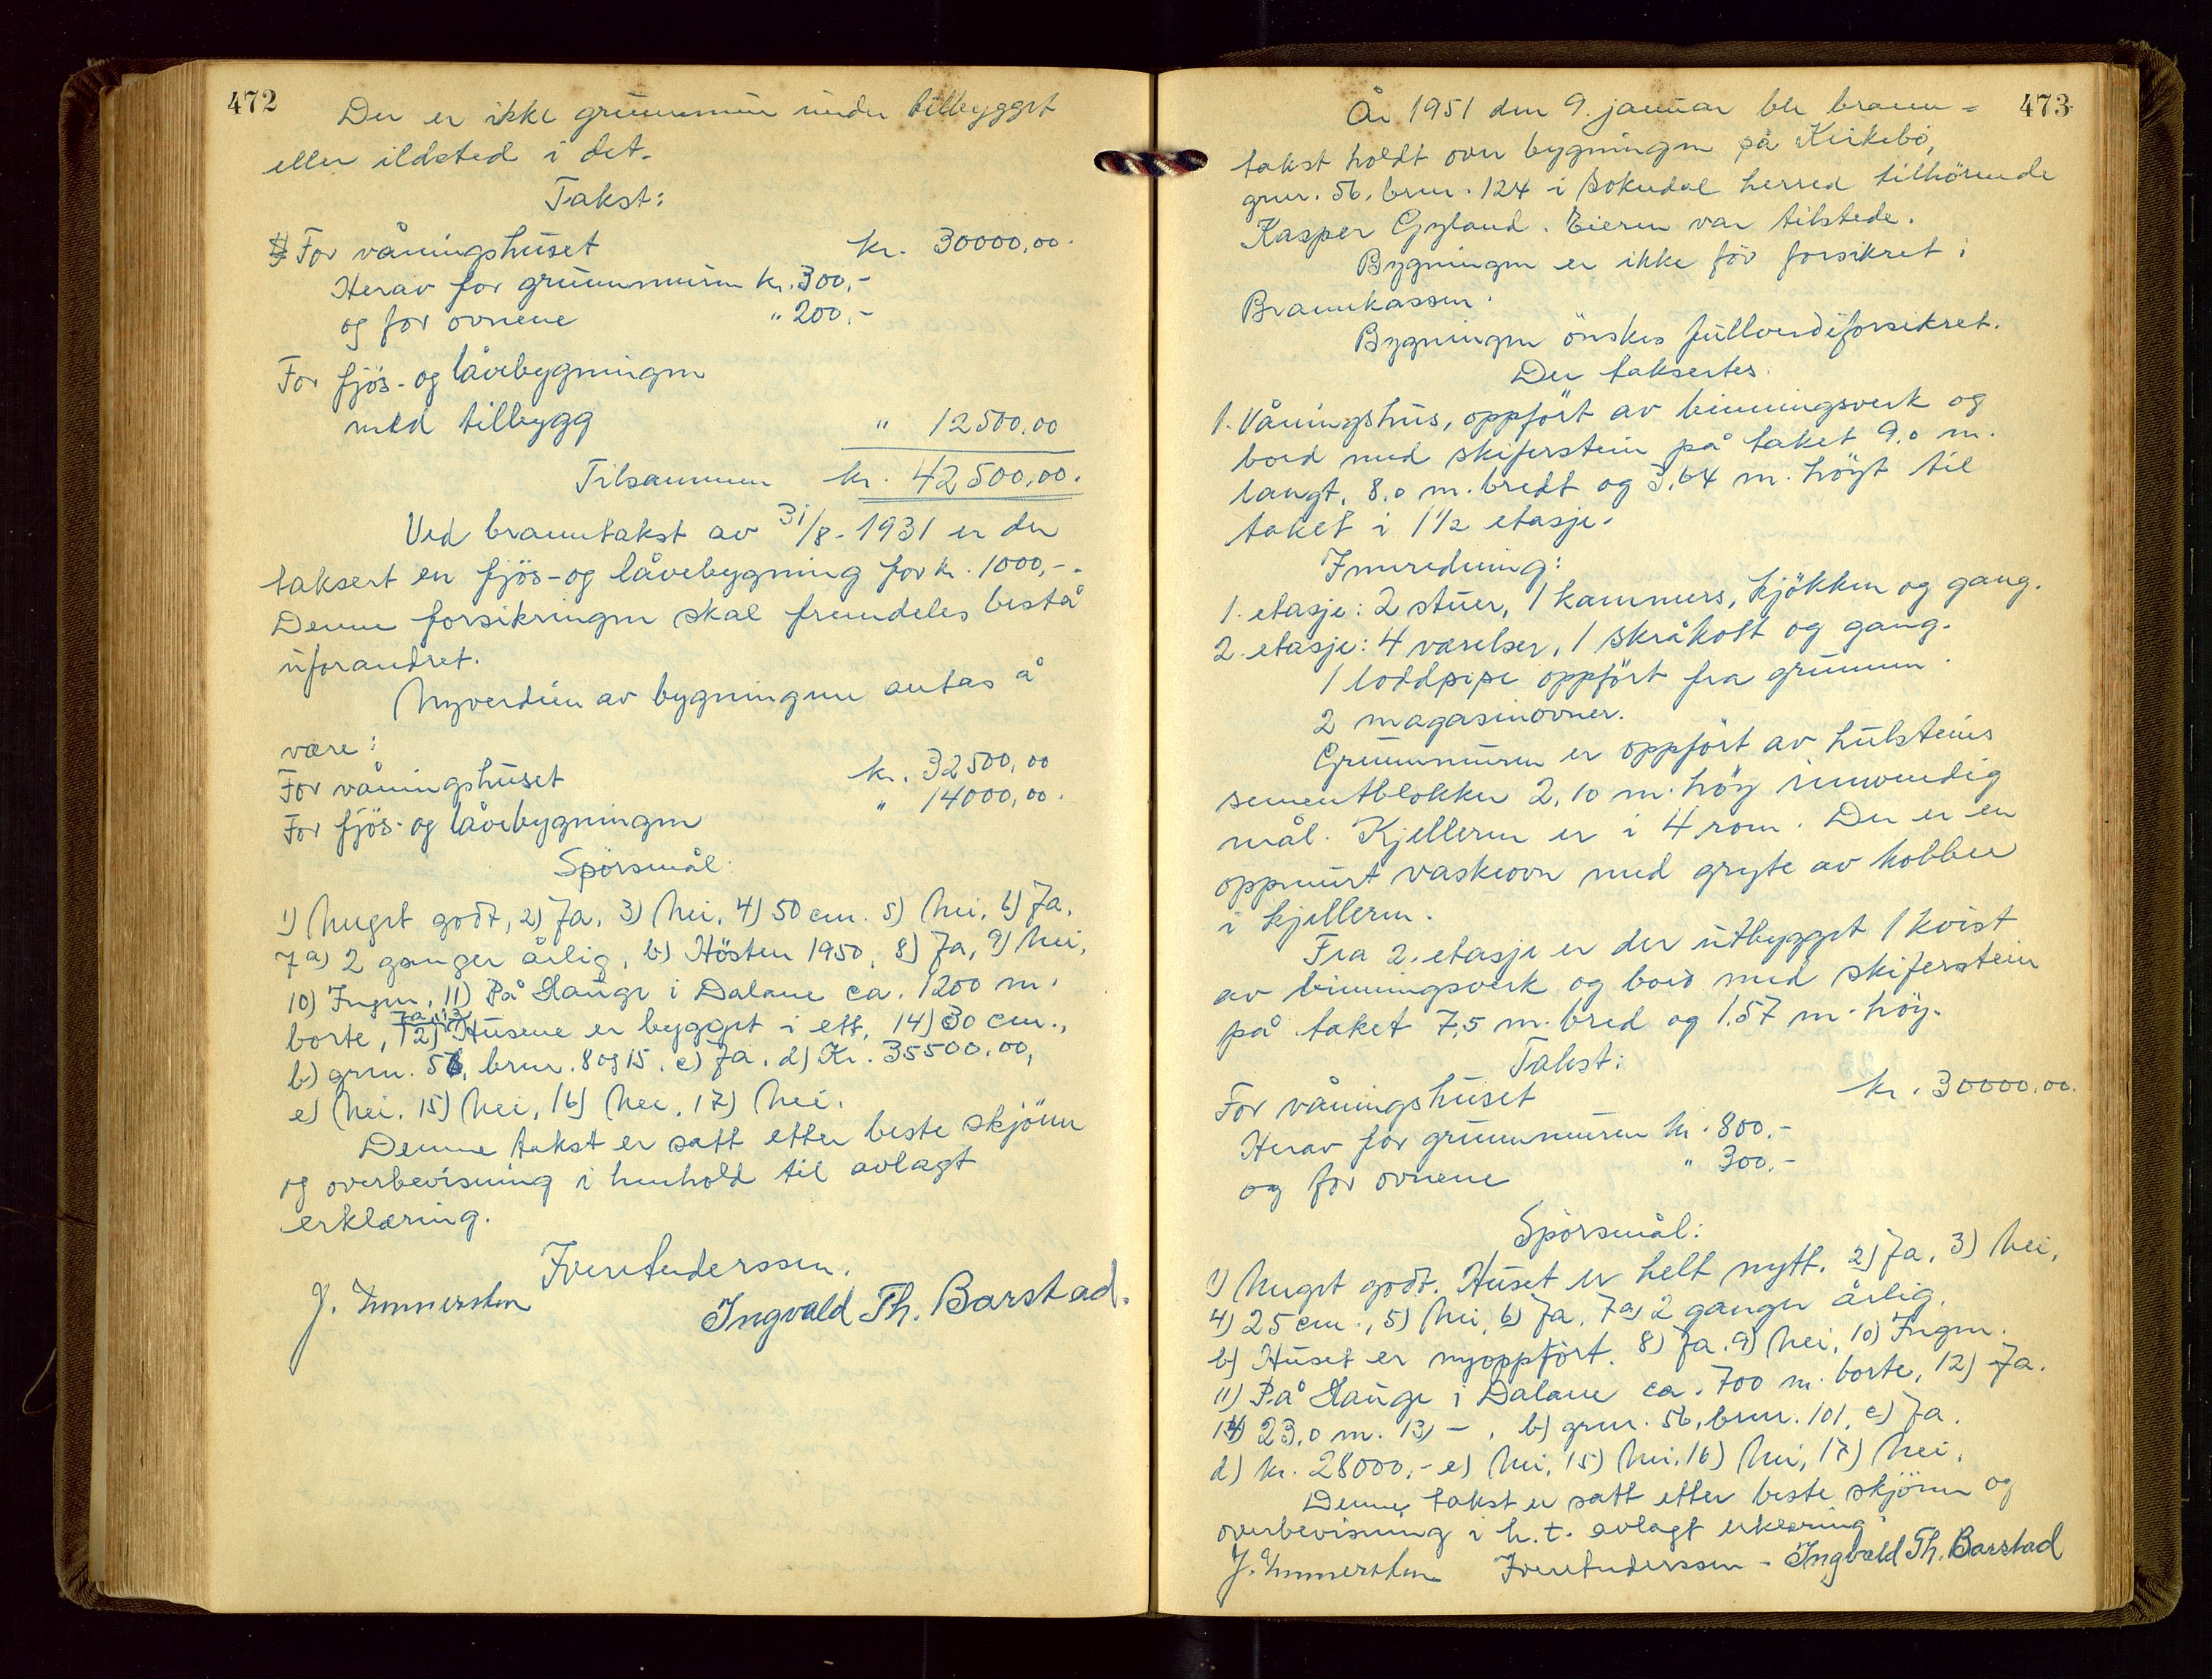 472
Der er ikke grunnmur under tilbygget
eller ildsted i det.
Takst:
For våningshuset kr. 30000,00.
Herav for grunnmuren kr. 300,-
og for ovnene " 200,-
For fjös- og låvebygningen
med tilbygg " 12500,00
Tilsammen kr. 42500,00.
Ved branntakst av 31/8-1931 er der
taksert en fjös- og låvebygning for kr. 1000,-.
Denne forsikringen skal fremdeles bestå
uforandret.
Nyverdien av bygningene antas å
være:
For våningshuset kr. 32500,00
For fjös- og låvebygningen " 14000,00.
Spörsmål:
1) Meget godt, 2) Ja, 3) Nei, 4) 50 cm. 5) Nei, 6) Ja,
7a) 2 ganger årlig, b) Hösten 1950, 8) Ja, 9) Nei,
10) Ingen, 11) På Hauge i Dalane ca. 1200 m.
borte, 12) Ja, 13) Husene er bygget i ett, 14) 30 cm.,
b) grnr. 56, brnr. 8 og 15, c) Ja, d) Kr. 35500,00,
e) Nei, 15) Nei, 16) Nei, 17) Nei.
Denne takst er satt etter beste skjönn
og overbevisning i henhold til avlagt
erklæring.
Iver Anderssen.
J. Emmersten Ingvald Th. Barstad.
473
År 1951 den 9. januar ble brann=
takst holdt over bygningen på Kirkebö,
grnr. 56, brnr. 124 i Sokndal herred tilhörende
Kasper Gyland. Eieren var tilstede.
Bygningen er ikke för forsikret i
Brannkassen.
Bygningen önskes fullverdiforsikret.
Der taksertes:
1. Våningshus, oppfört av binningsverk og
bord med skiferstein på taket 9,0 m.
langt, 8,0 m. bredt og 3,64 m. höyt til
taket i 1 1/2 etasje.
Innredning:
1. etasje: 2 stuer, 1 kammers, kjökken og gang.
2. etasje: 4 værelser, 1 skråkott og gang.
1 loddpipe oppfört fra grunnen.
2 magasinovner.
Grunnmuren er oppfört av hulsteins
sementblokker 2,10 m. höy innvendig
mål. Kjelleren er i 4 rom. Der er en
oppmurt vaskeovn med gryte av kobber
i kjelleren.
Fra 2. etasje er der utbygget 1 kvist
av binningsverk og bord med skiferstein
på taket 7,5 m. bred og 1,57 m. höy.
Takst:
For våningshuset kr. 30000,00.
Herav for grunnmuren kr. 800,-
og for ovnene " 300,-
Spörsmål:
1) Meget godt. Huset er helt nytt. 2) Ja, 3) Nei,
4) 25 cm., 5) Nei, 6) Ja, 7a) 2 ganger årlig,
b) Huset er nyoppfört. 8) Ja, 9) Nei, 10) Ingen.
11) På Hauge i Dalane ca. 700 m. borte, 12) Ja.
14) 23,0 m. 13) -, b) grnr. 56, brnr. 101, c) Ja.
d) kr. 28000,- e) Nei, 15) Nei, 16) Nei, 17) Nei.
Denne takst er satt etter beste skjönn og
overbevisning i h.t. avlagt erklæring.
J. Emmersten Iver Anderssen - Ingvald Th. Barstad